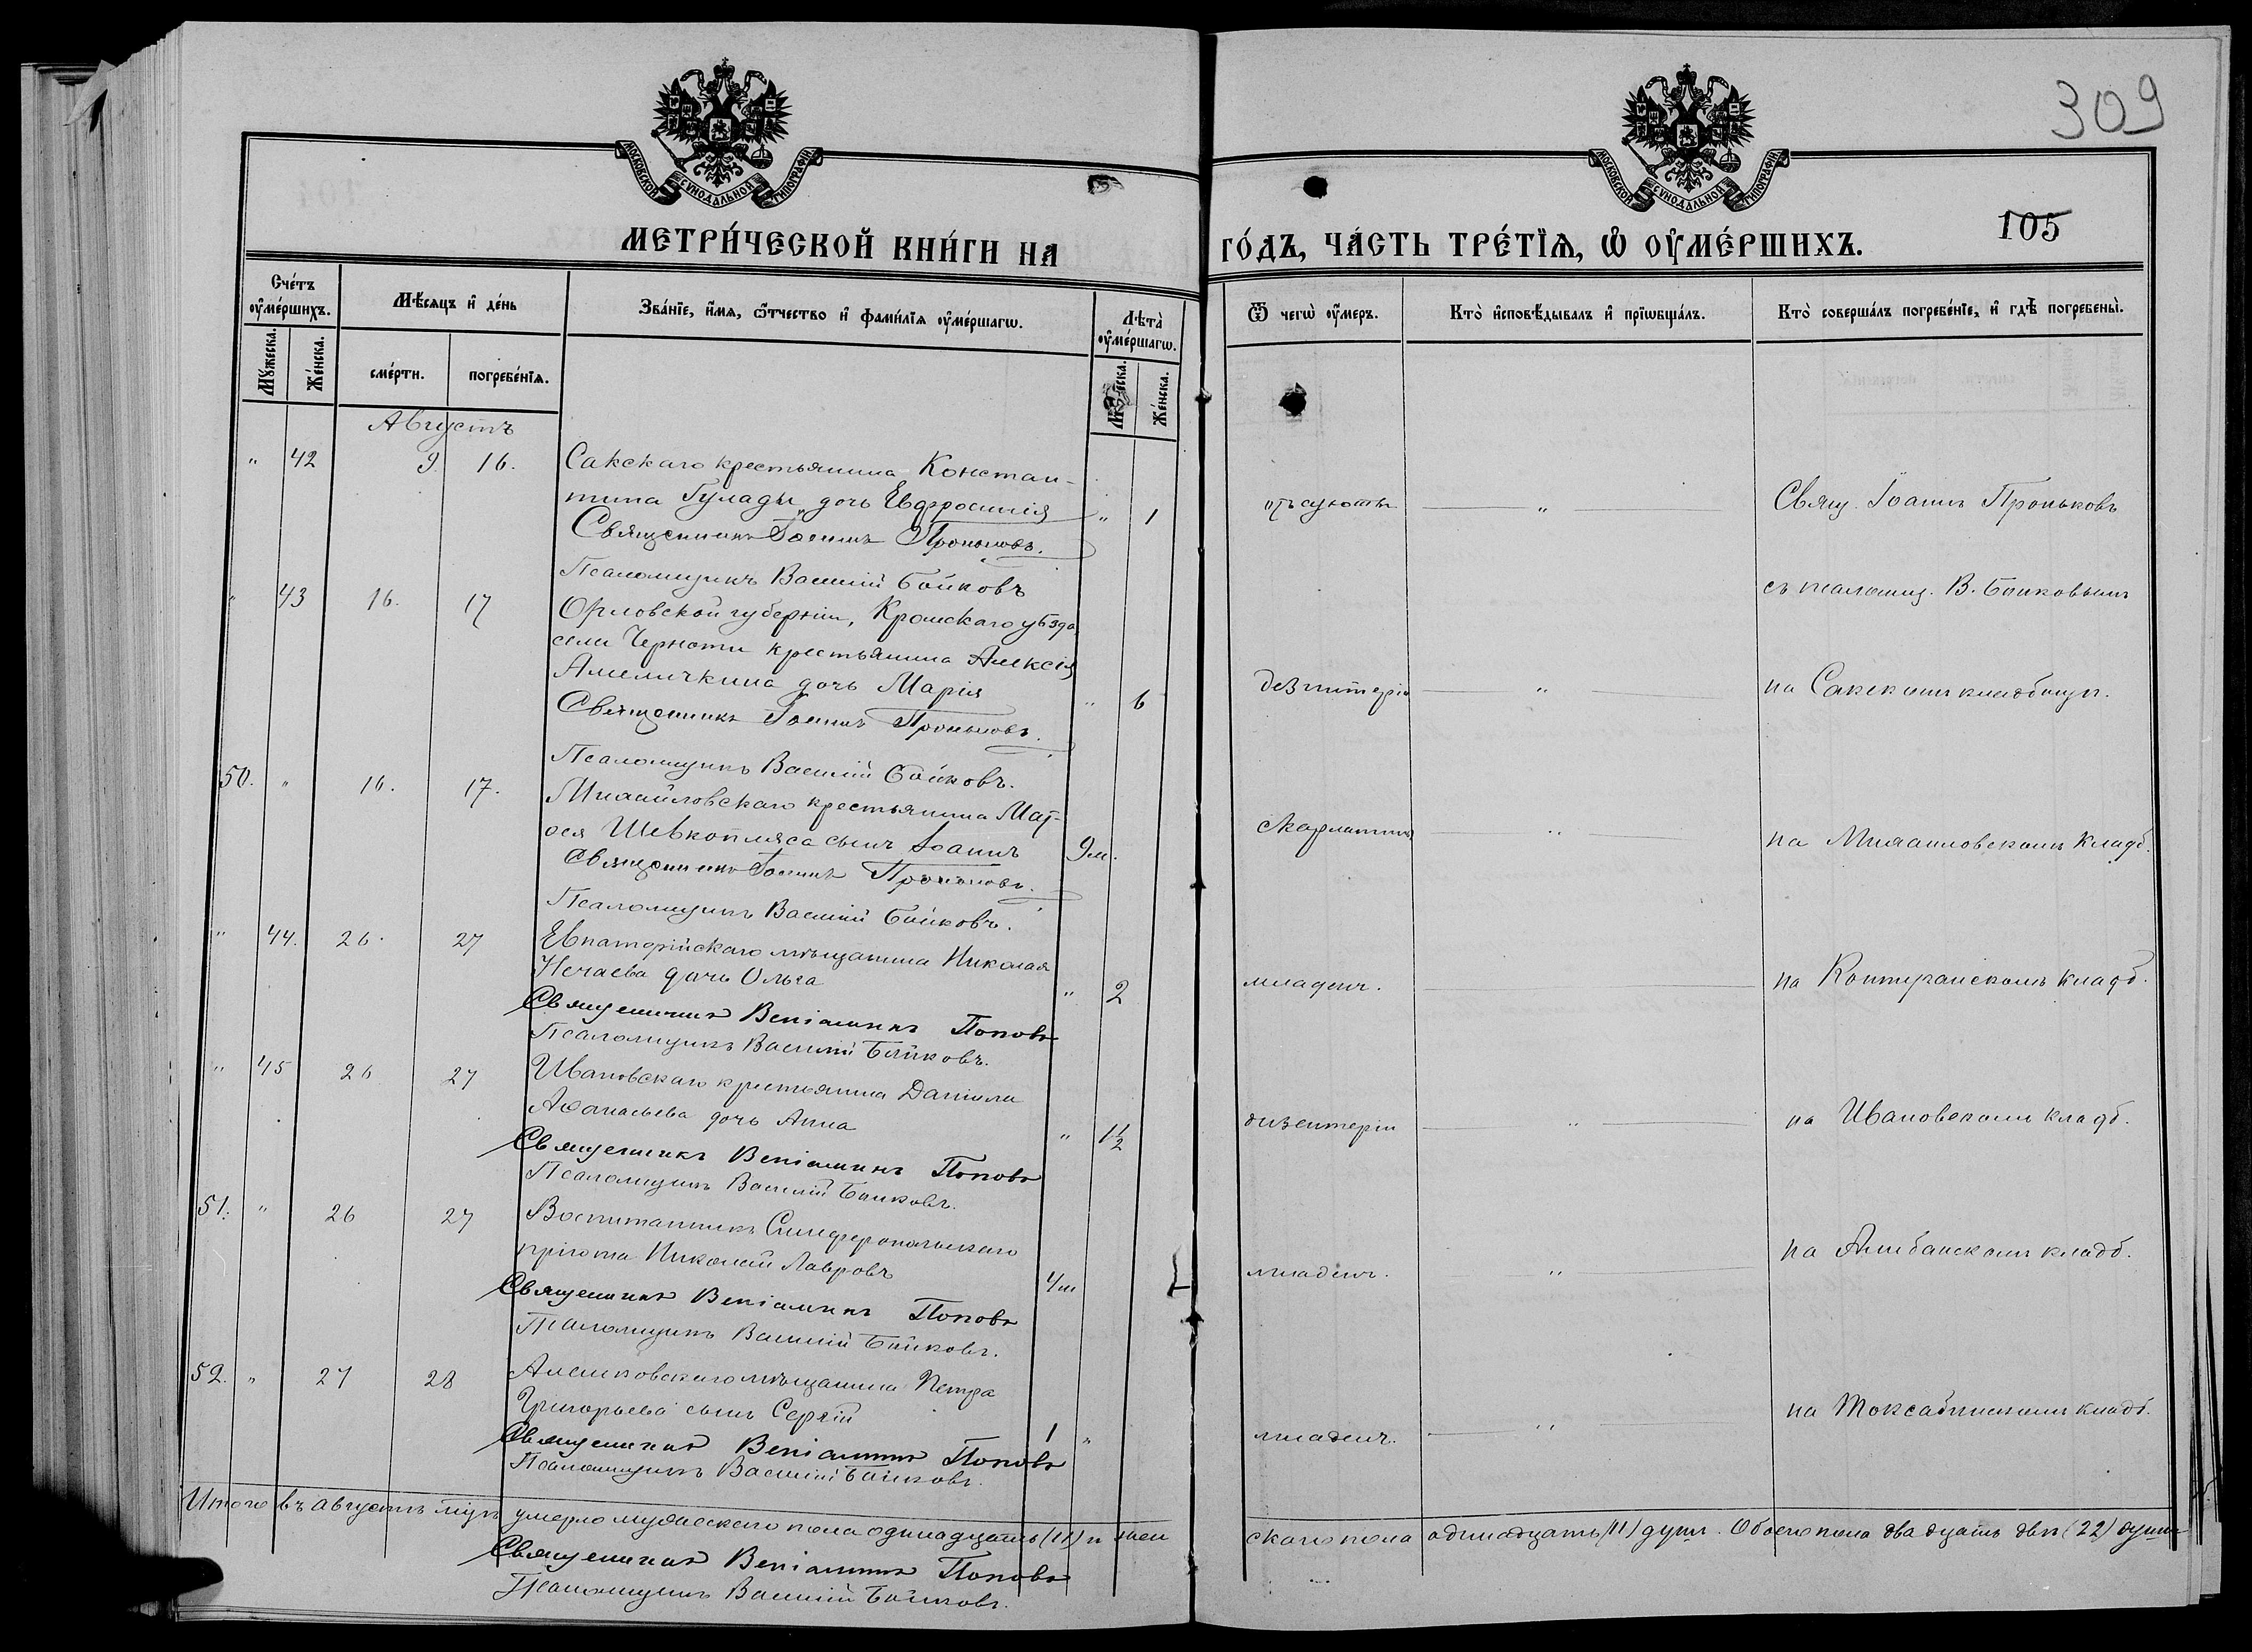 309
105
МОСКОВСКОЙ СУНОДАЛЬНОЙ ТИПОГРАФІИ
МОСКОВСКОЙ СУНОДАЛЬНОЙ ТИПОГРАФІИ
МЕТРИ́ЧЕСКОЙ КНИ́ГИ НА ГО́ДЪ, ЧА́СТЬ ТРЕ́ТЇѦ, Ѡ ОУМЕ́РШИХЪ.
Сче́тъ оумéршихъ.
Мꙋ́жеска.
Же́нска.
Мѣ́сѧцъ и де́нь
сме́рти.
погребе́нїѧ.
Зва́нїе, и́мѧ, ѻ́тчество и фами́лїѧ оумéршагѡ.
Лѣта̀ оумéршагѡ.
Же́нска.
Ѿ чегѡ̀ оу́меръ.
Кто̀ исповѣ́дывалъ и прїѡбща́лъ.
Кто̀ соверша́лъ погребе́нїе, и гдѣ̀ погребены̀.
Августъ
" 42 9. 16. Сакскаго крестьянина Констан-
тина Гулады дочь Евфросинія " 1
Священникъ Іоаннъ Проньковъ.
Псаломщикъ Василій Бойковъ
Свящ. Іоаннъ Проньковъ
съ псаломщ. В. Бойковымъ
" 43 16. 17 Орловской губерніи, Кромскаго уѣзда
села Черноти крестьянина Алексія
Амеличкина дочь Марія " 6
Священникъ Іоаннъ Проньковъ.
Псаломщикъ Василій Бойковъ.
дезинтеріи " на Сакскомъ кладбищѣ.
50. " 16. 17. Михайловскаго крестьянина Мат-
ѳея Шевкопляса сынъ Іоаннъ 9 м.
Священникъ Іоаннъ Проньковъ.
Псаломщикъ Василій Бойковъ.
скарлатины " на Михайловскомъ кладб.
" 44. 26. 27 Евпаторійскаго мѣщанина Николая
Нечаева дочь Ольга " 2
Священникъ Веніаминъ Поповъ
Псаломщикъ Василій Бойковъ.
младенч. на Контуганскомъ кладб.
" 45 26 27 Ивановскаго крестьянина Даніила
Аѳанасьева дочь Анна " 1½
Священникъ Веніаминъ Поповъ
Псаломщикъ Василій Бойковъ.
дизентеріи " на Ивановскомъ кладб.
51. " 26 27 Воспитанникъ Симферопольскаго
пріюта Николай Лавровъ 4 м
Священникъ Веніаминъ Поповъ
Псаломщикъ Василій Бойковъ.
младенч. " на Ашбайскомъ кладб.
52. " 27 28 Алешковскаго мѣщанина Петра
Григорьева сынъ Сергій 1 "
Священникъ Веніаминъ Поповъ
Псаломщикъ Василій Бойковъ.
младенч. " на Токсабинскомъ кладб.
Итого въ августѣ мцѣ умерло мужескаго пола одинадцать (11) и жен
скаго пола одинадцать (11) душъ. Обоего пола двадцать двѣ (22) души
Священникъ Веніаминъ Поповъ
Псаломщикъ Василій Бойковъ.